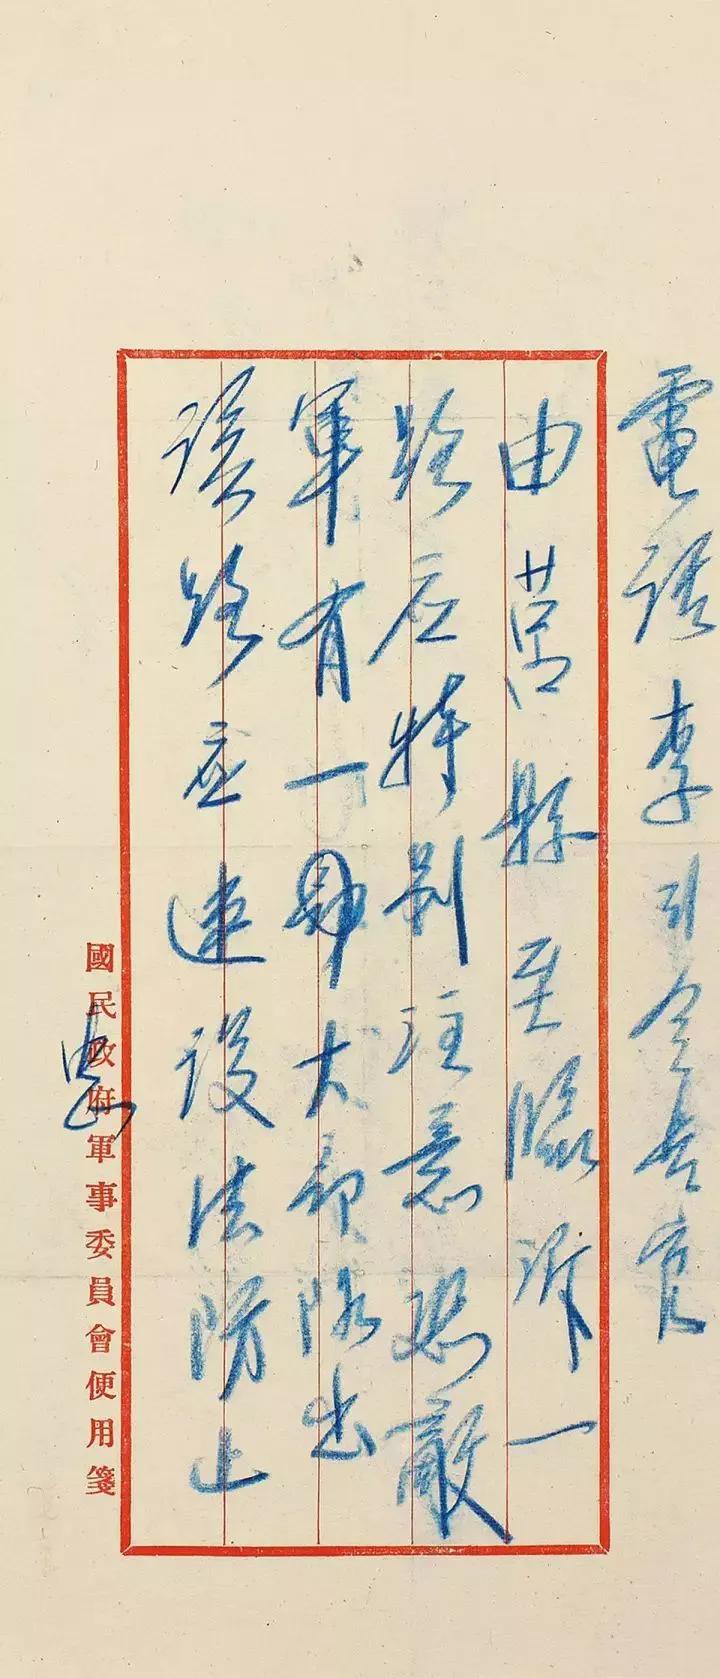 電話李司令長官
由莒縣至臨沂一
路应特别注意恐敵
軍有一師大部隊出
該路应速設法防止
中正
國民政府軍事委員會便用箋